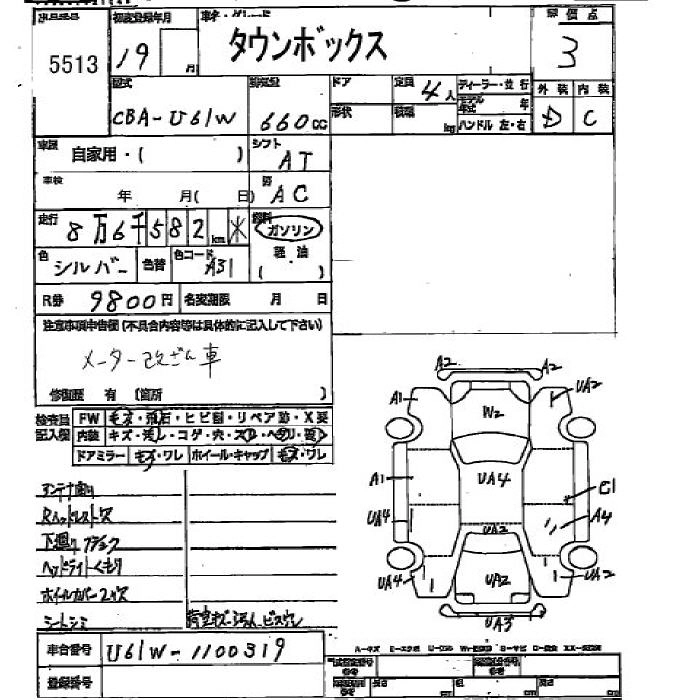 出品番号 初度登録年月 車名・グレード 評価点
5513 19 月 タウンボックス 3
型式 排気量 ドア 定員 4人 ディーラー・並行 外装 内装
CBA-U61W 660cc 形状 積載 kg モデル年式 年 D C
ハンドル 左・右
車歴 自家用・( ) シフト AT
車検 年 月( 日) AC
走行 8万6千582km 燃料 ガソリン
軽油
( )
色 シルバー 色替 色コード A31
R券 9800円 名変期限 月 日
注意事項申告欄(不具合内容等は具体的に記入して下さい)
メーター改ざん車
修復歴 有 (箇所 )
検査員 FW キズ・飛石・ヒビ割・リペア跡・X要
記入欄 内装 キズ・汚レ・コゲ・穴・スレ・ヘタリ・
ドアミラー キズ・ワレ ホイール・キャップ キズ・ワレ
A2 A2
A1 W2 UA2
A1 UA4 C1
UA4 UA2 A4
UA4 UA2 UA2
UA3
アンテナ曲り
Rヘッドレスト欠
下廻りサビ
ヘッドライトくもり
ホイルカバー2ケ欠
シートシミ 荷室キズ・汚れ、ビス穴
車台番号 U61W-1100319
登録番号